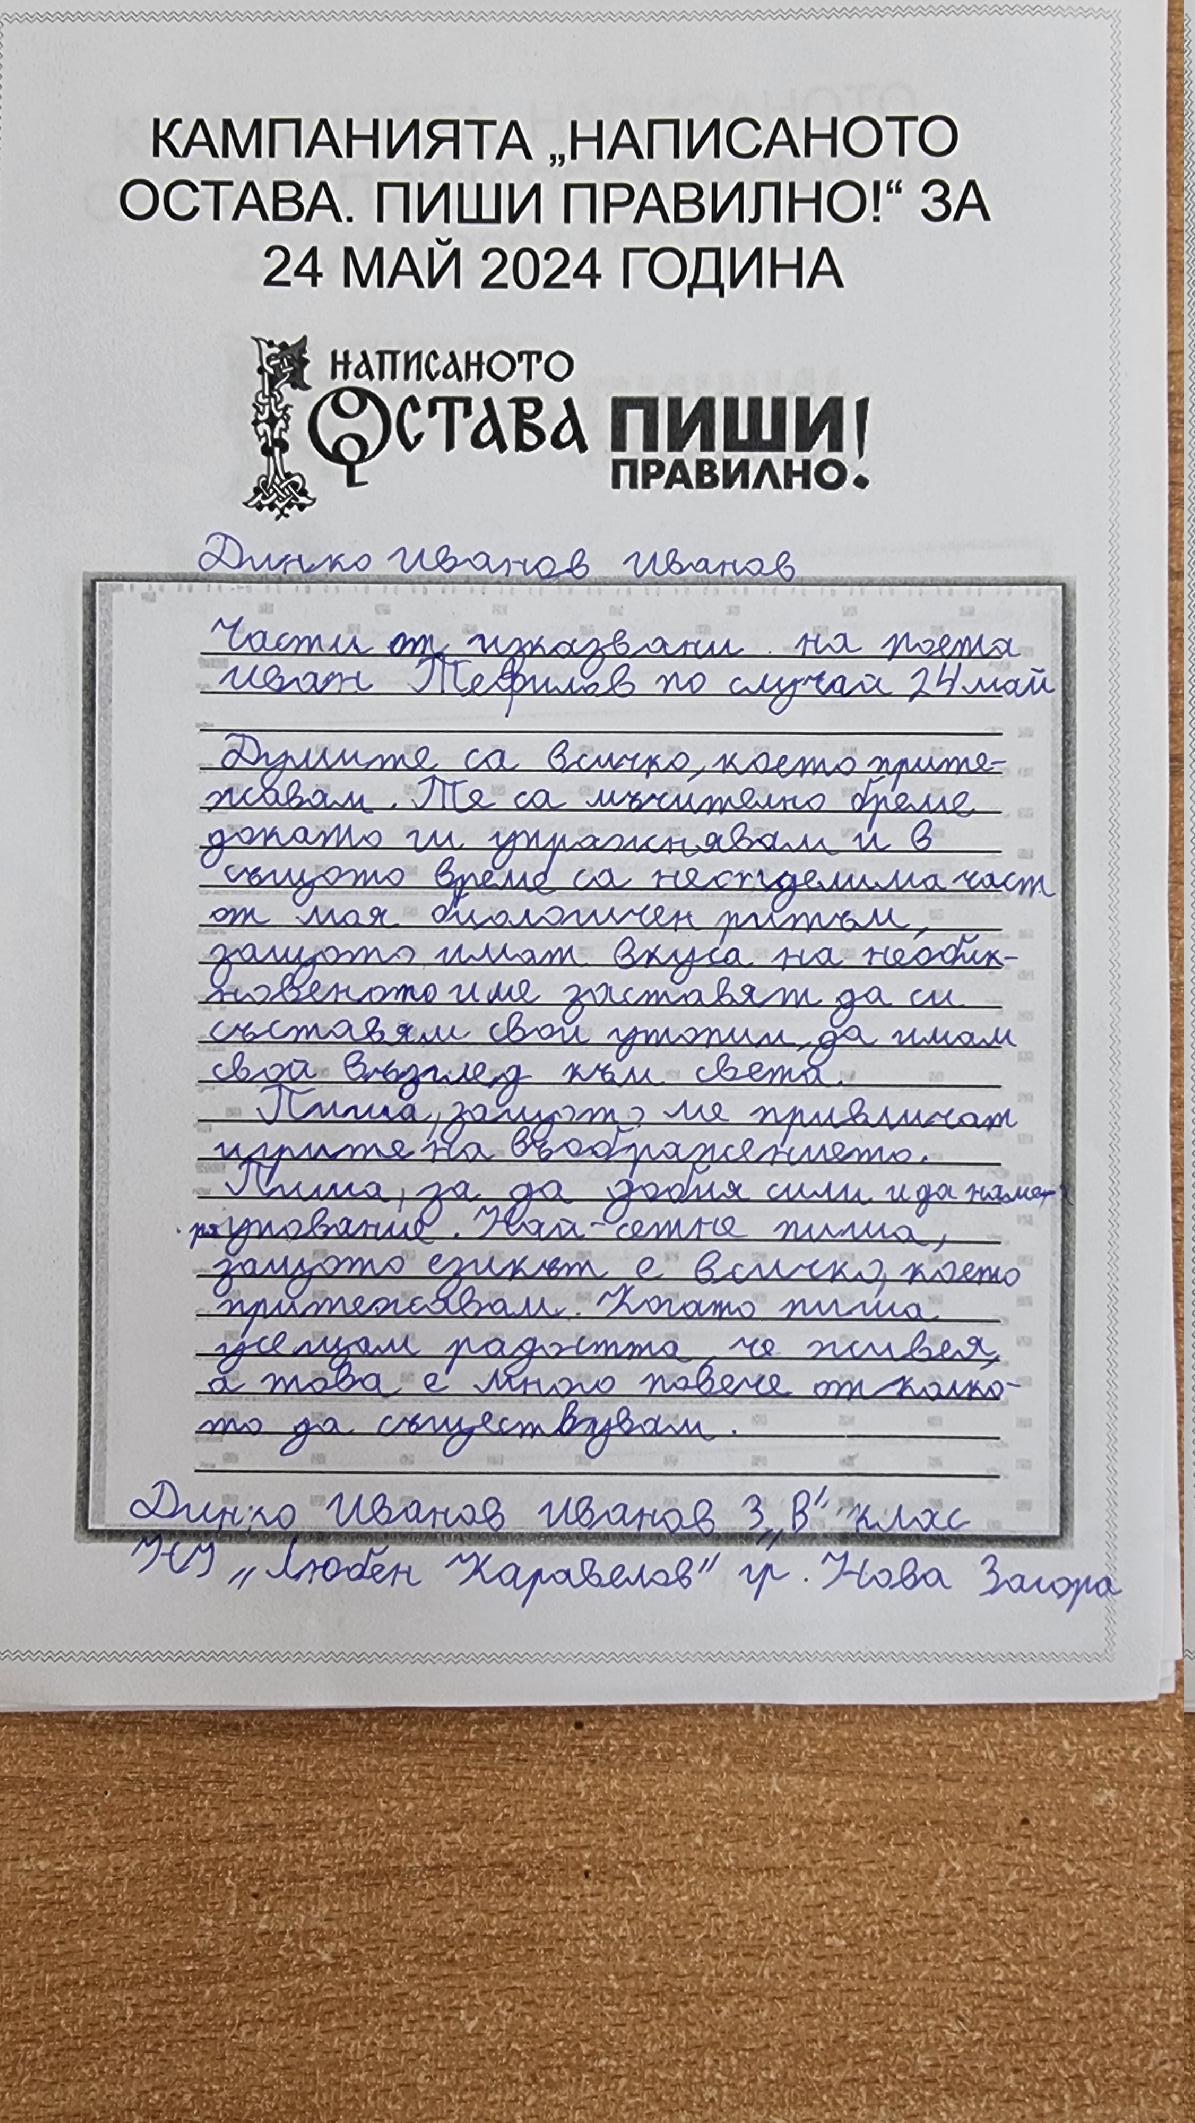 КАМПАНИЯТА „НАПИСАНОТО
ОСТАВА. ПИШИ ПРАВИЛНО!“ ЗА
24 МАЙ 2024 ГОДИНА
НАПИСАНОТО
ОСТАВА ПИШИ!
ПРАВИЛНО.
Динко Иванов Иванов
Части от изказвани на поета
Иван Теофилов по случай 24 май
Думите са всичко, което прите-
жавам. Те са мъчително бреме
докато ги упражнявам и в
същото време са неотделима част
от моя биологичен ритъм,
защото имат вкуса на необик-
новеното и ме заставят да си
съставям свои утопии, да имам
свой възглед към света.
Пиша, защото ме привличат
игрите на въображението.
Пиша, за да добия сили и да наме-
ря упование. Най-сетне пиша,
защото езикът е всичко, което
притежавам. Когато пиша
усещам радостта, че живея,
а това е много повече от колко-
то да съществувам.
Динко Иванов Иванов 3 „В“ клас
НУ „Любен Каравелов“ гр. Нова Загора